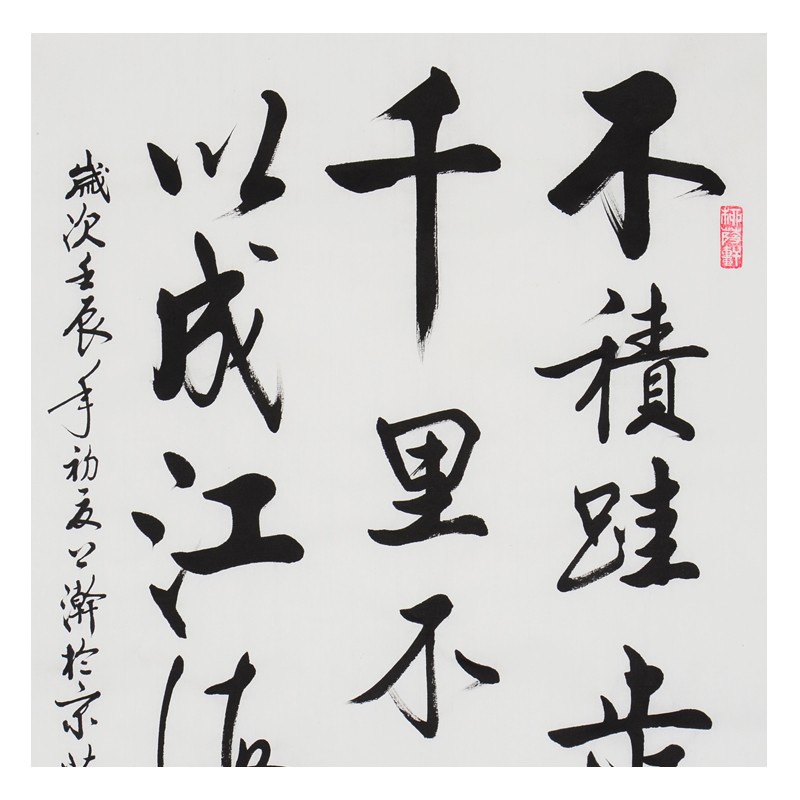 不積跬步
千里不
以成江海
歲次壬辰年初夏公瀚於京